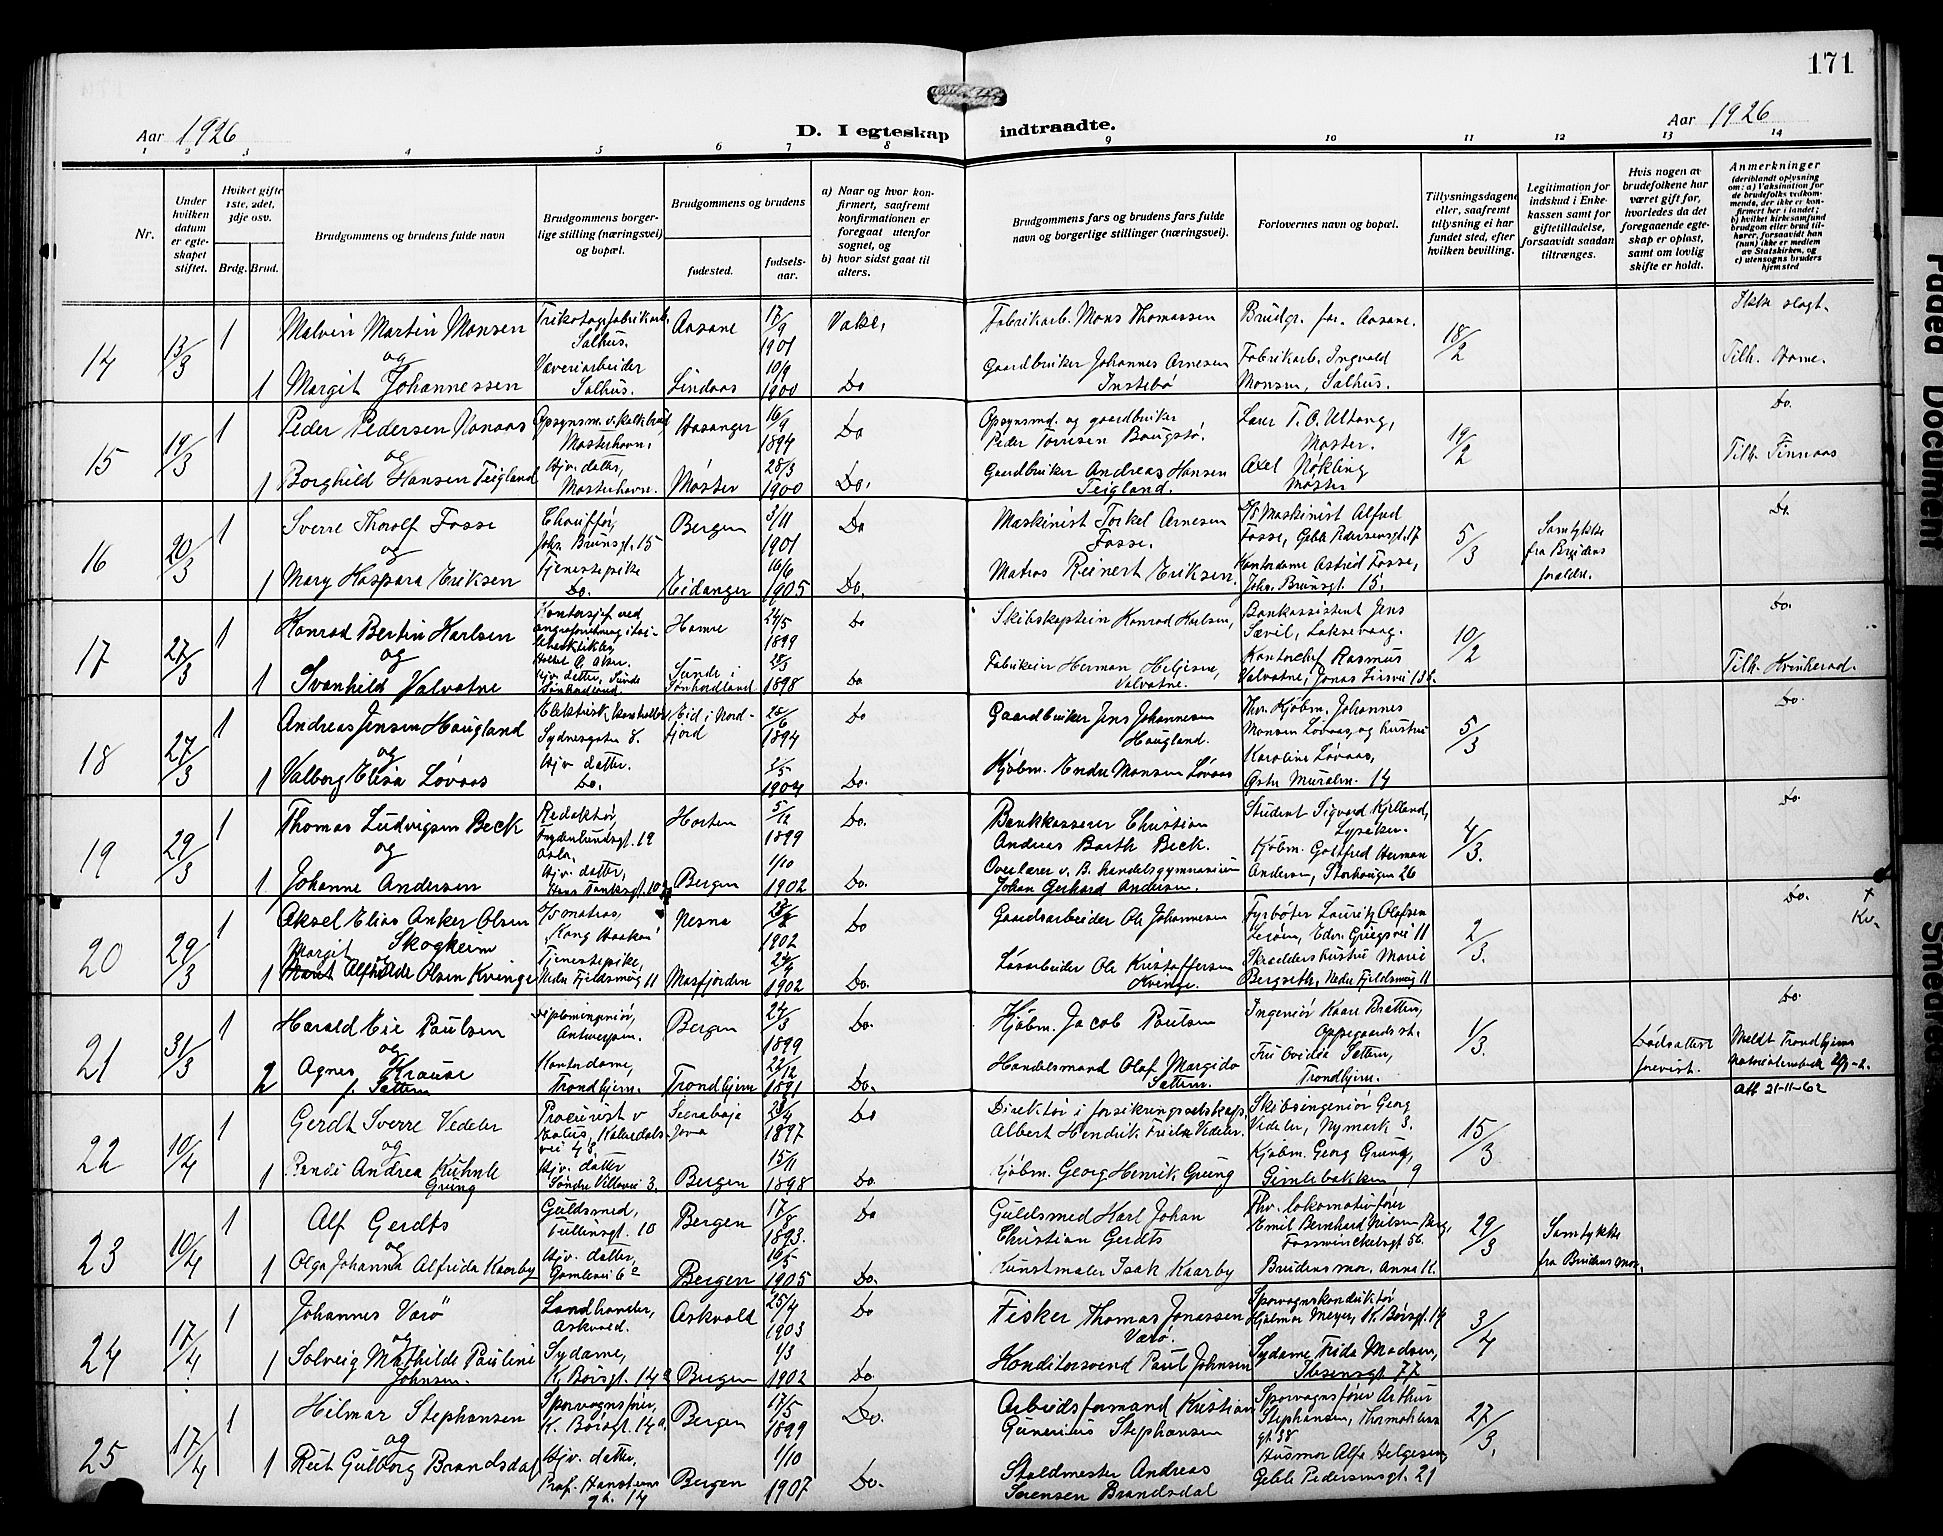 171
Aar 1926
D. I egteskap indtraadte.
Aar 1926
1 2 3 4 5 6 7 8 9 10 11 12 13 14
Nr.
Under hvilken datum er egteskapet stiftet.
Hvilket gifte 1ste, 2det, 3dje osv.
Brdg. Brud.
Brudgommens og brudens fulde navn
Brudgommens borgerlige stilling (næringsvei) og bopæl.
Brudgommens og brudens
fødested.
fødselsaar.
a) Naar og hvor konfirmert, saafremt konfirmationen er foregaat utenfor sognet, og
b) hvor sidst gaat til alters.
Brudgommens fars og brudens fars fulde navn og borgerlige stillinger (næringsvei).
Forlovernes navn og bopæl.
Tillysningsdagene eller, saafremt tillysning ei har fundet sted, efter hvilken bevilling.
Legitimation for indskud i Enkekassen samt for giftetilladelse, forsaavidt saadan tiltrænges.
Hvis nogen av brudefolkene har været gift før, hvorledes da det foregaaende egteskap er opløst, samt om lovlig skifte er holdt.
Anmerkninger (deriblandt oplysning om: a) Vaksination for de brudefolks vedkommende, der ikke er konfirmert her i landet; b) hvilket kirkesamfund brudgom eller brud tilhører, forsaavidt han (hun) ikke er medlem av Statskirken, og c) utensogns bruders hjemsted
14 13/3 1 Malvin Martin Monsen Trikotagefabrikarb. Salhus. Aasane 17/9 1901 Vaks. Fabrikarb. Mons Thomassen Brudgr. far. Aasane. 18/2 Ikke slagt.
og
1 Margit Johannessen Væveriarbeider Salhus. Lindaas 10/9 1900 Do Gaardbruker Johannes Arnesen Instebö Fabrikarb. Ingvald Monsen, Salhus. Tilh. Hame.
15 19/3 1 Peder Pedersen Vonaas Opsynsm. v. kalkbrud Mosterhavn. Aasanger 16/9 1894 Do Opsynsmd. og gaardbruker Peder Torrisen Baugstö. Laur T. O. Ultang, Moster. 19/2 Do.
og
1 Borghild Hansen Teigland Hjv. datter, Mosterhavn. Moster 28/3 1900 Do. Gaardbruker Andreas Hansen Teigland. Axel Nökling Moster Tilh. Finnaas
16 20/3 1 Sverre Thoralf Fosse Chauffør, Joh. Brunsgt. 15 Bergen 3/11 1901 Do Maskinist Torkel Arnesen Fosse. Maskinist Alfred Fosse, Geble Pedersensgt. 17 5/3 Samtykke fra Brudens forældre. Do.
og
1 Mary Haspara Eriksen Tjenestepike Do. Eidanger 16/6 1905 Do. Matros Reinert Eriksen. Kontordame Astrid Fosse, Joh. Brunsgt. 15.
17 27/3 1 Konrad Bertin Karlsen Kontorsjef ved Hamre 24/5 1899 Do Skibskaptein Konrad Karlsen, Bankassistent Jens Sævil, Laksevaag. 10/2 Do.
og
1 Svanhild Valvatne Hjv. datter, Sunde Sønhordland. Sunde i Sønhordland 28/3 1898 Do. Fabrikeier Herman Helgesen Valvatne. Kontorchef Rasmus Valvatne, Jonas Liesvei 13 Tilh. Kvinherad.
18 27/3 1 Andreas Jensen Haugland Elektrisk kontrollør, Sydnesgaten 8. Eid i Nordfjord 25/6 1894 Do Gaardbruker Jens Johannesen Haugland. Fhv. Kjøbm. Johannes Monsen Løvaas, og hustru 5/3 Do.
og
1 Valborg Elisa Løvaas Hjv. datter. Do. 2/5 1904 Do. Kjøbm. Endre Monsen Løvaas Karoline Løvaas, Østre Muralm. 14
19 29/3 1 Thomas Ludvigsen Beck Redaktør, Oslo. Horten 5/12 1899 Do. Bankkasserer Christian Andreas Barth Beck. Student Sigvard Kjelland, Lysaker. 4/3. Do.
og
1. Johanne Andersen Hjv. datter, Hans Tanksgt. 10 Bergen 1/10 1902 Do. Overlærer v. B. handelsgymnasium Johan Gerhard Andersen. Kjøbm. Gottfred Herman Andersen, Storhaugen 26
20 29/3 1 Aksel Elias Anker Olsen Skogheim D/S matros, "Kong Haakon" Nesna 23/2 1902 Do Gaardsarbeider Ole Johannesen Fyrbøter Lauritz Olafsen Lerøen, Edv. Griegsvei 11 2/3. Do. + Kv.
Margit og
1 Alfhilde Olsen Kvinge Tjenestepike, Nedre Fjeldsmug 11 Masfjorden 24/4 1902 Do. Løsarbeider Ole Kristoffersen Kvinge. Skrædders hustru Marie Bergseth, Nedre Fjeldsmug 11
21 31/3 1 Harald Eie Paulsen Diplomingeniør, Antwerpen. Bergen 24/3 1899 Do. Kjøbm. Jacob Paulsen Ingeniør Kaare Bratten, Oppegaard st. 1/3. Do.
og
2 Agnes Krause f. Sættem Kontordame, Trondhjem. Trondhjem 22/12 1891 Do. Handelsmand Olaf Margido Sættem. Fru Ovidia Sættem, Trondhjem. Dødsattest forevist. Meldt Trondhjems
Att 21-11-62
22 10/4 1 Gerdt Sverre Vedeler Procurist v Kalvedalsvei 48. Soerabaja Java 23/4 1897 Do Direktør i forsikringsselskap. Albert Hendrik Vedeler. Skibsingeniør Georg Vedeler, Nymark 3. 15/3
og
1 Renée Andrea Kuhnle Grung Hjv. datter Søndre Villavei 3. Bergen 15/11 1898 Do Kjøbm. Georg Henrik Grung Kjøbm. Georg Grung, Gimlebakken 9
23 10/4 1 Alf Gerdts Guldsmed, Tullinsgt. 10 Bergen 17/8 1893. Do Guldsmed Karl Johan Christian Gerdts Fhv. lokomotivfører Emil Bernhard Nilsen Berg, Fosswinckelsgt 56. 29/3 Samtykke fra Brudens mor.
og
1 Olga Johanna Alfrida Kaarby Hjv. datter, Gamlevei 6 Bergen 16/5 1905 Do. Kunstmaler Isak Kaarby Brudens mor. Anna K.
24 17/4 1 Johannes Varö Landhandler, Askvold. Askvold 25/4 1903 Do Fisker Thomas Jonassen Værö. Sporvognskonduktør Hjalmar Meyer, K. Børsgt. 14 3/4
og
1 Solveig Mathilde Pauline Johnsen. Sydame, K. Børsgt. 14 a Bergen 1/3 1902 Do. Konditorsvend Paul Johnsen Sydame Frida Madsen, Ibsensgt 77
25 17/4 1 Hilmar Stephansen Sporvognsfører, K. Børsgt. 14 a. Bergen 17/5 1899 Do. Arbeidsformand Kristian Gunerius Stephansen Sporvognsfører Arthur Stephansen, Thormøhlens gt. 38 27/3.
og
1 Rut Gulborg Brandsdal Hjv. datter. Prof. Hansteens gt. 14 Bergen 1/10 1907 Do. Staldmester Andreas Sørensen Brandsdal Husmor Alfa Helgesen Geble Pedersensgt. 21
Faded Document
Smedet